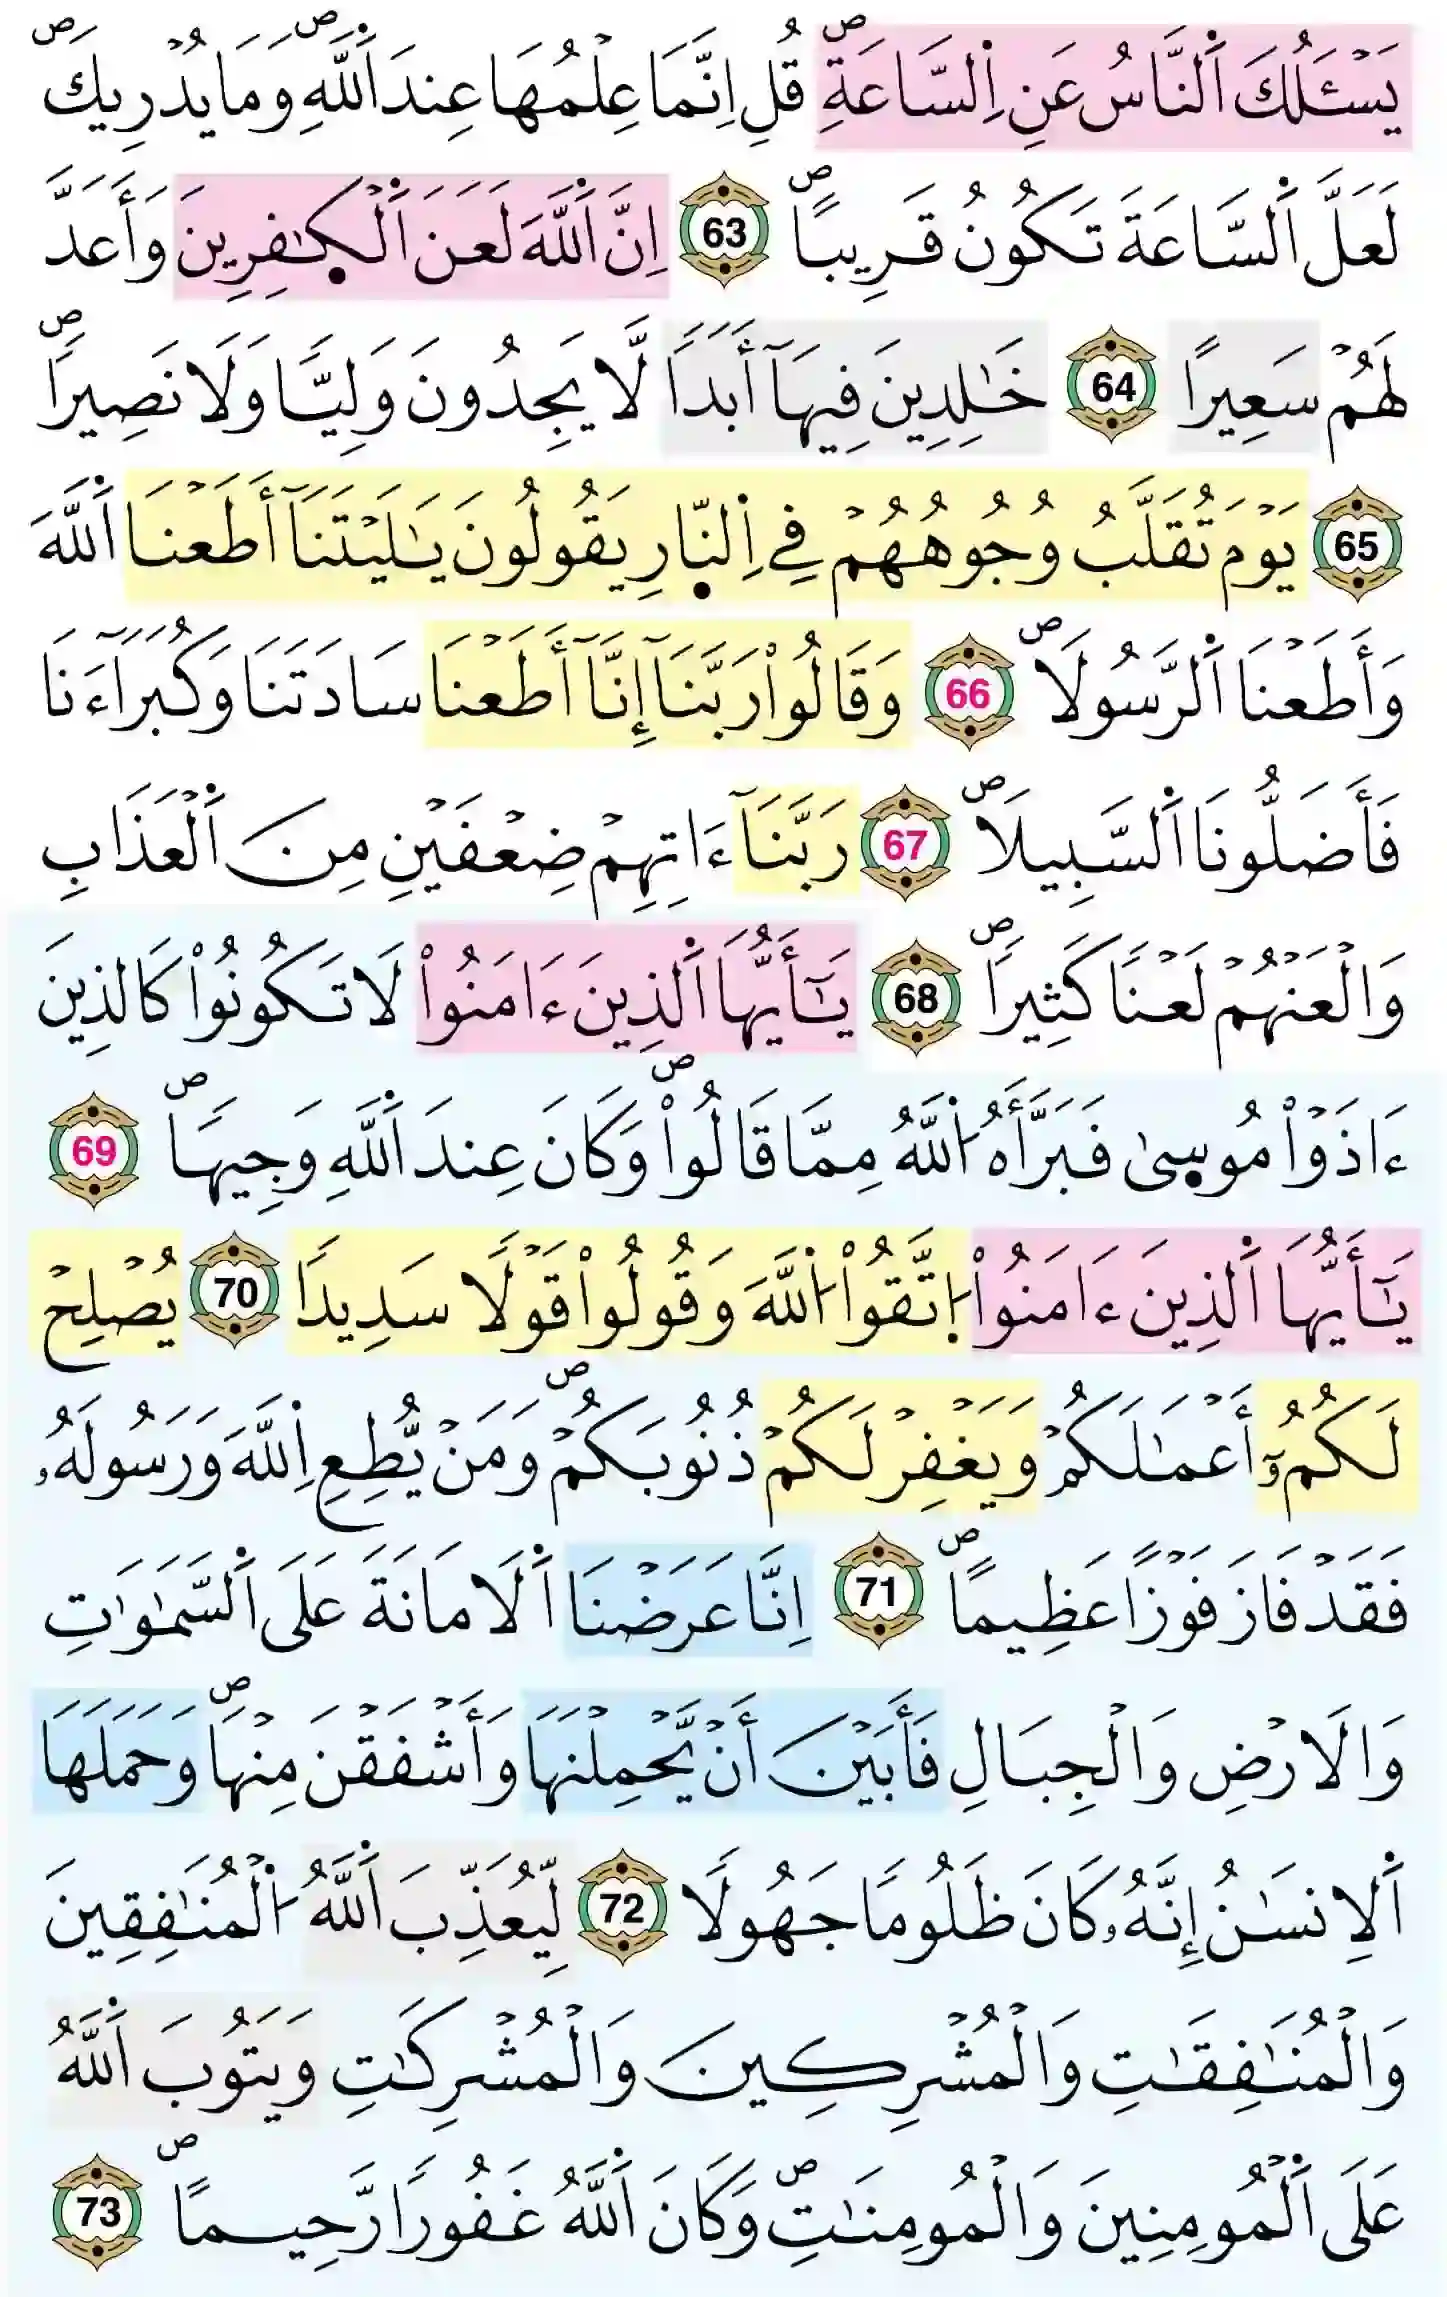 يَسْـَٔلُكَ اَ۬لنَّاسُ عَنِ اِ۬لسَّاعَةِۖ قُلِ اِنَّمَا عِلْمُهَا عِندَ اَ۬للَّهِۖ وَمَا يُدْرِيكَۖ
لَعَلَّ اَ۬لسَّاعَةَ تَكُونُ قَرِيباًۖ 63 اِنَّ اَ۬للَّهَ لَعَنَ اَ۬لْكٰ۪فِرِينَ وَأَعَدَّ
لَهُمْ سَعِيراً 64 خَٰلِدِينَ فِيهَآ أَبَداً لَّا يَجِدُونَ وَلِيّاً وَلَا نَصِيراًۖ
65 يَوْمَ تُقَلَّبُ وُجُوهُهُمْ فِے اِ۬لنّ۪ارِ يَقُولُونَ يَٰلَيْتَنَآ أَطَعْنَا اَ۬للَّهَ
وَأَطَعْنَا اَ۬لرَّسُولَاۖ 66 وَقَالُواْ رَبَّنَآ إِنَّآ أَطَعْنَا سَادَتَنَا وَكُبَرَآءَنَا
فَأَضَلُّونَا اَ۬لسَّبِيلَاۖ 67 رَبَّنَآ ءَاتِهِمْ ضِعْفَيْنِ مِنَ اَ۬لْعَذَابِ
وَالْعَنْهُمْ لَعْناً كَثِيراًۖ 68 يَٰٓأَيُّهَا اَ۬لذِينَ ءَامَنُواْ لَا تَكُونُواْ كَالذِينَ
ءَاذَوْاْ مُوس۪يٰ فَبَرَّأَهُ اُ۬للَّهُ مِمَّا قَالُواْۖ وَكَانَ عِندَ اَ۬للَّهِ وَجِيهاًۖ 69
يَٰٓأَيُّهَا اَ۬لذِينَ ءَامَنُواْ اُ۪تَّقُواْ اُ۬للَّهَ وَقُولُواْ قَوْلاً سَدِيداً 70 يُصْلِحْ
لَكُمُۥٓ أَعْمَٰلَكُمْ وَيَغْفِرْ لَكُمْ ذُنُوبَكُمْۖ وَمَنْ يُّطِعِ اِ۬للَّهَ وَرَسُولَهُۥ
فَقَدْ فَازَ فَوْزاً عَظِيماًۖ 71 اِنَّا عَرَضْنَا اَ۬لَامَانَةَ عَلَى اَ۬لسَّمَٰوَٰتِ
وَالَارْضِ وَالْجِبَالِ فَأَبَيْنَ أَنْ يَّحْمِلْنَهَا وَأَشْفَقْنَ مِنْهَاۖ وَحَمَلَهَا
اَ۬لِانسَٰنُ إِنَّهُۥ كَانَ ظَلُوماً جَهُولاً 72 لِّيُعَذِّبَ اَ۬للَّهُ اُ۬لْمُنَٰفِقِينَ
وَالْمُنَٰفِقَٰتِ وَالْمُشْرِكِينَ وَالْمُشْرِكَٰتِ وَيَتُوبَ اَ۬للَّهُ
عَلَى اَ۬لْمُومِنِينَ وَالْمُومِنَٰتِۖ وَكَانَ اَ۬للَّهُ غَفُوراً رَّحِيماًۖ 73